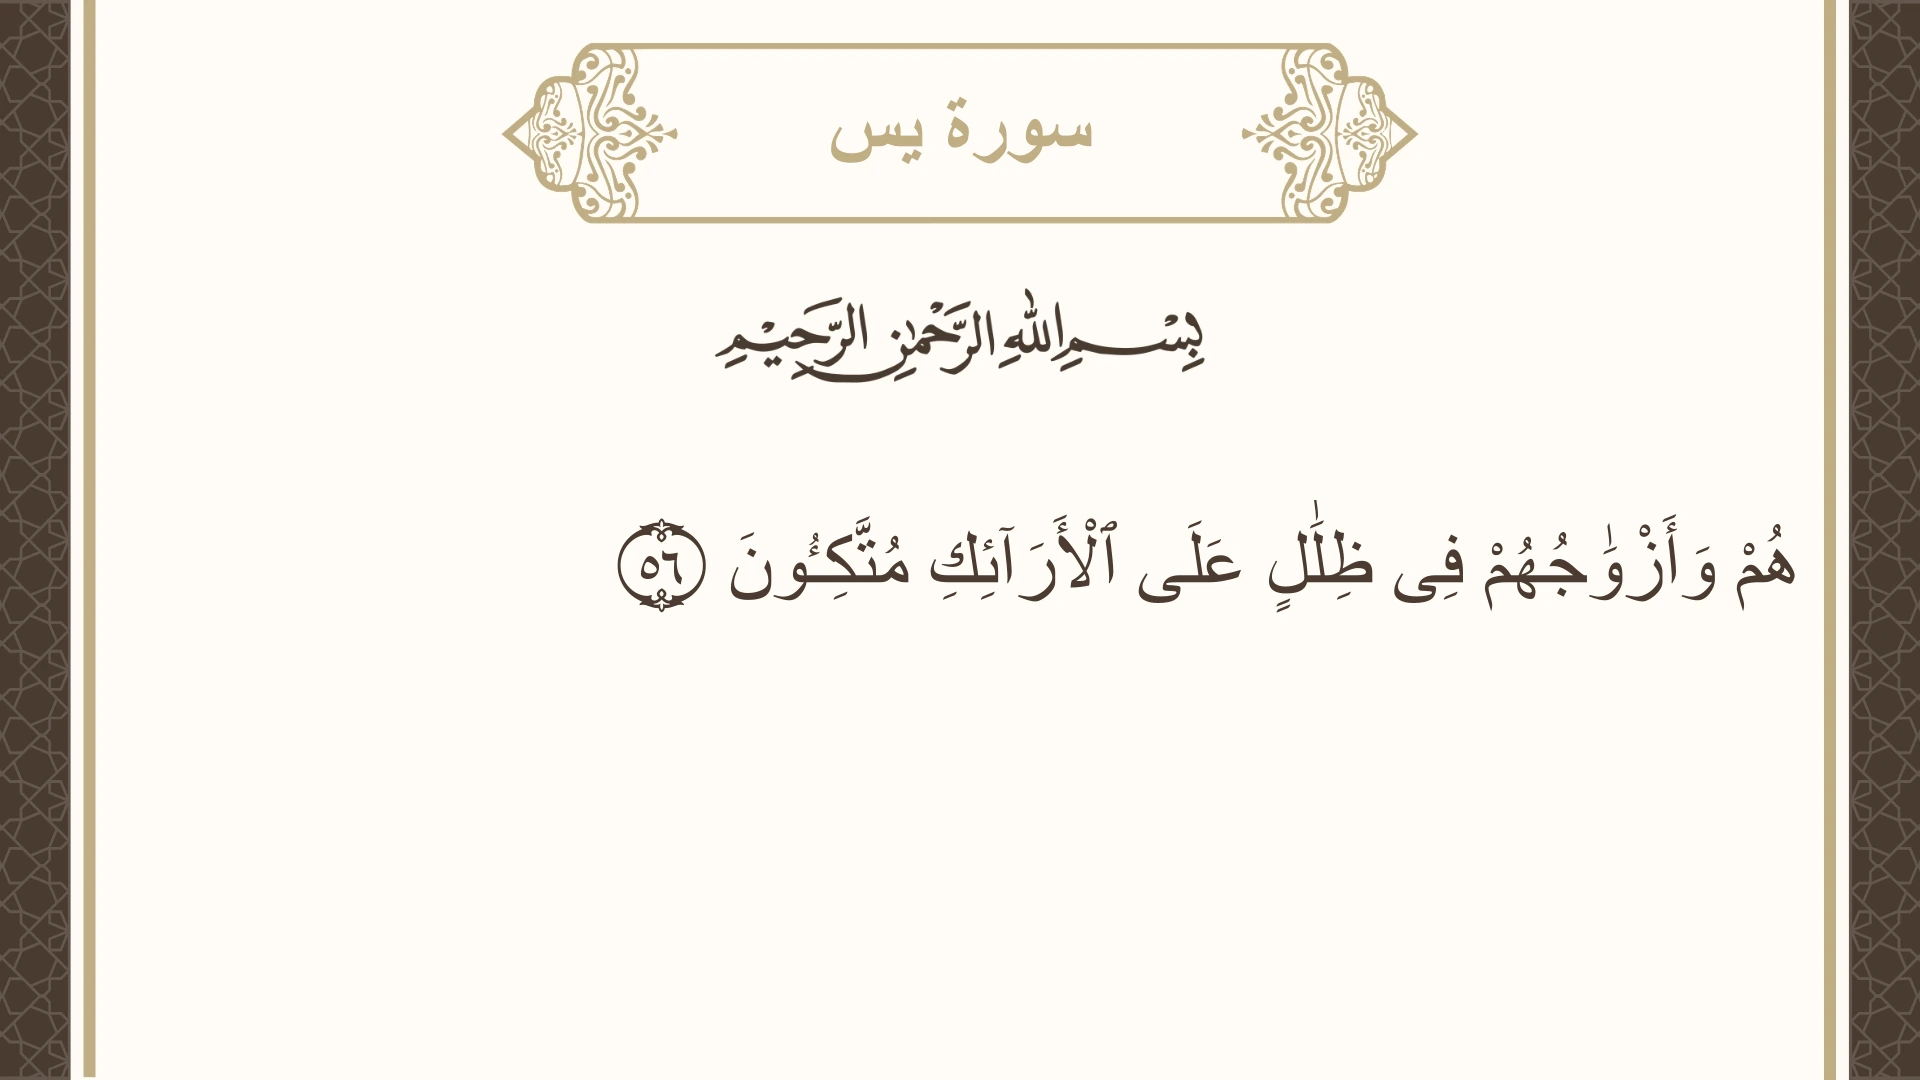 سورة يس
بِسْمِ اللهِ الرَّحْمٰنِ الرَّحِيْمِ
هُمْ وَأَزْوَٰجُهُمْ فِى ظِلَٰلٍ عَلَى ٱلْأَرَآئِكِ مُتَّكِـُٔونَ ٥٦